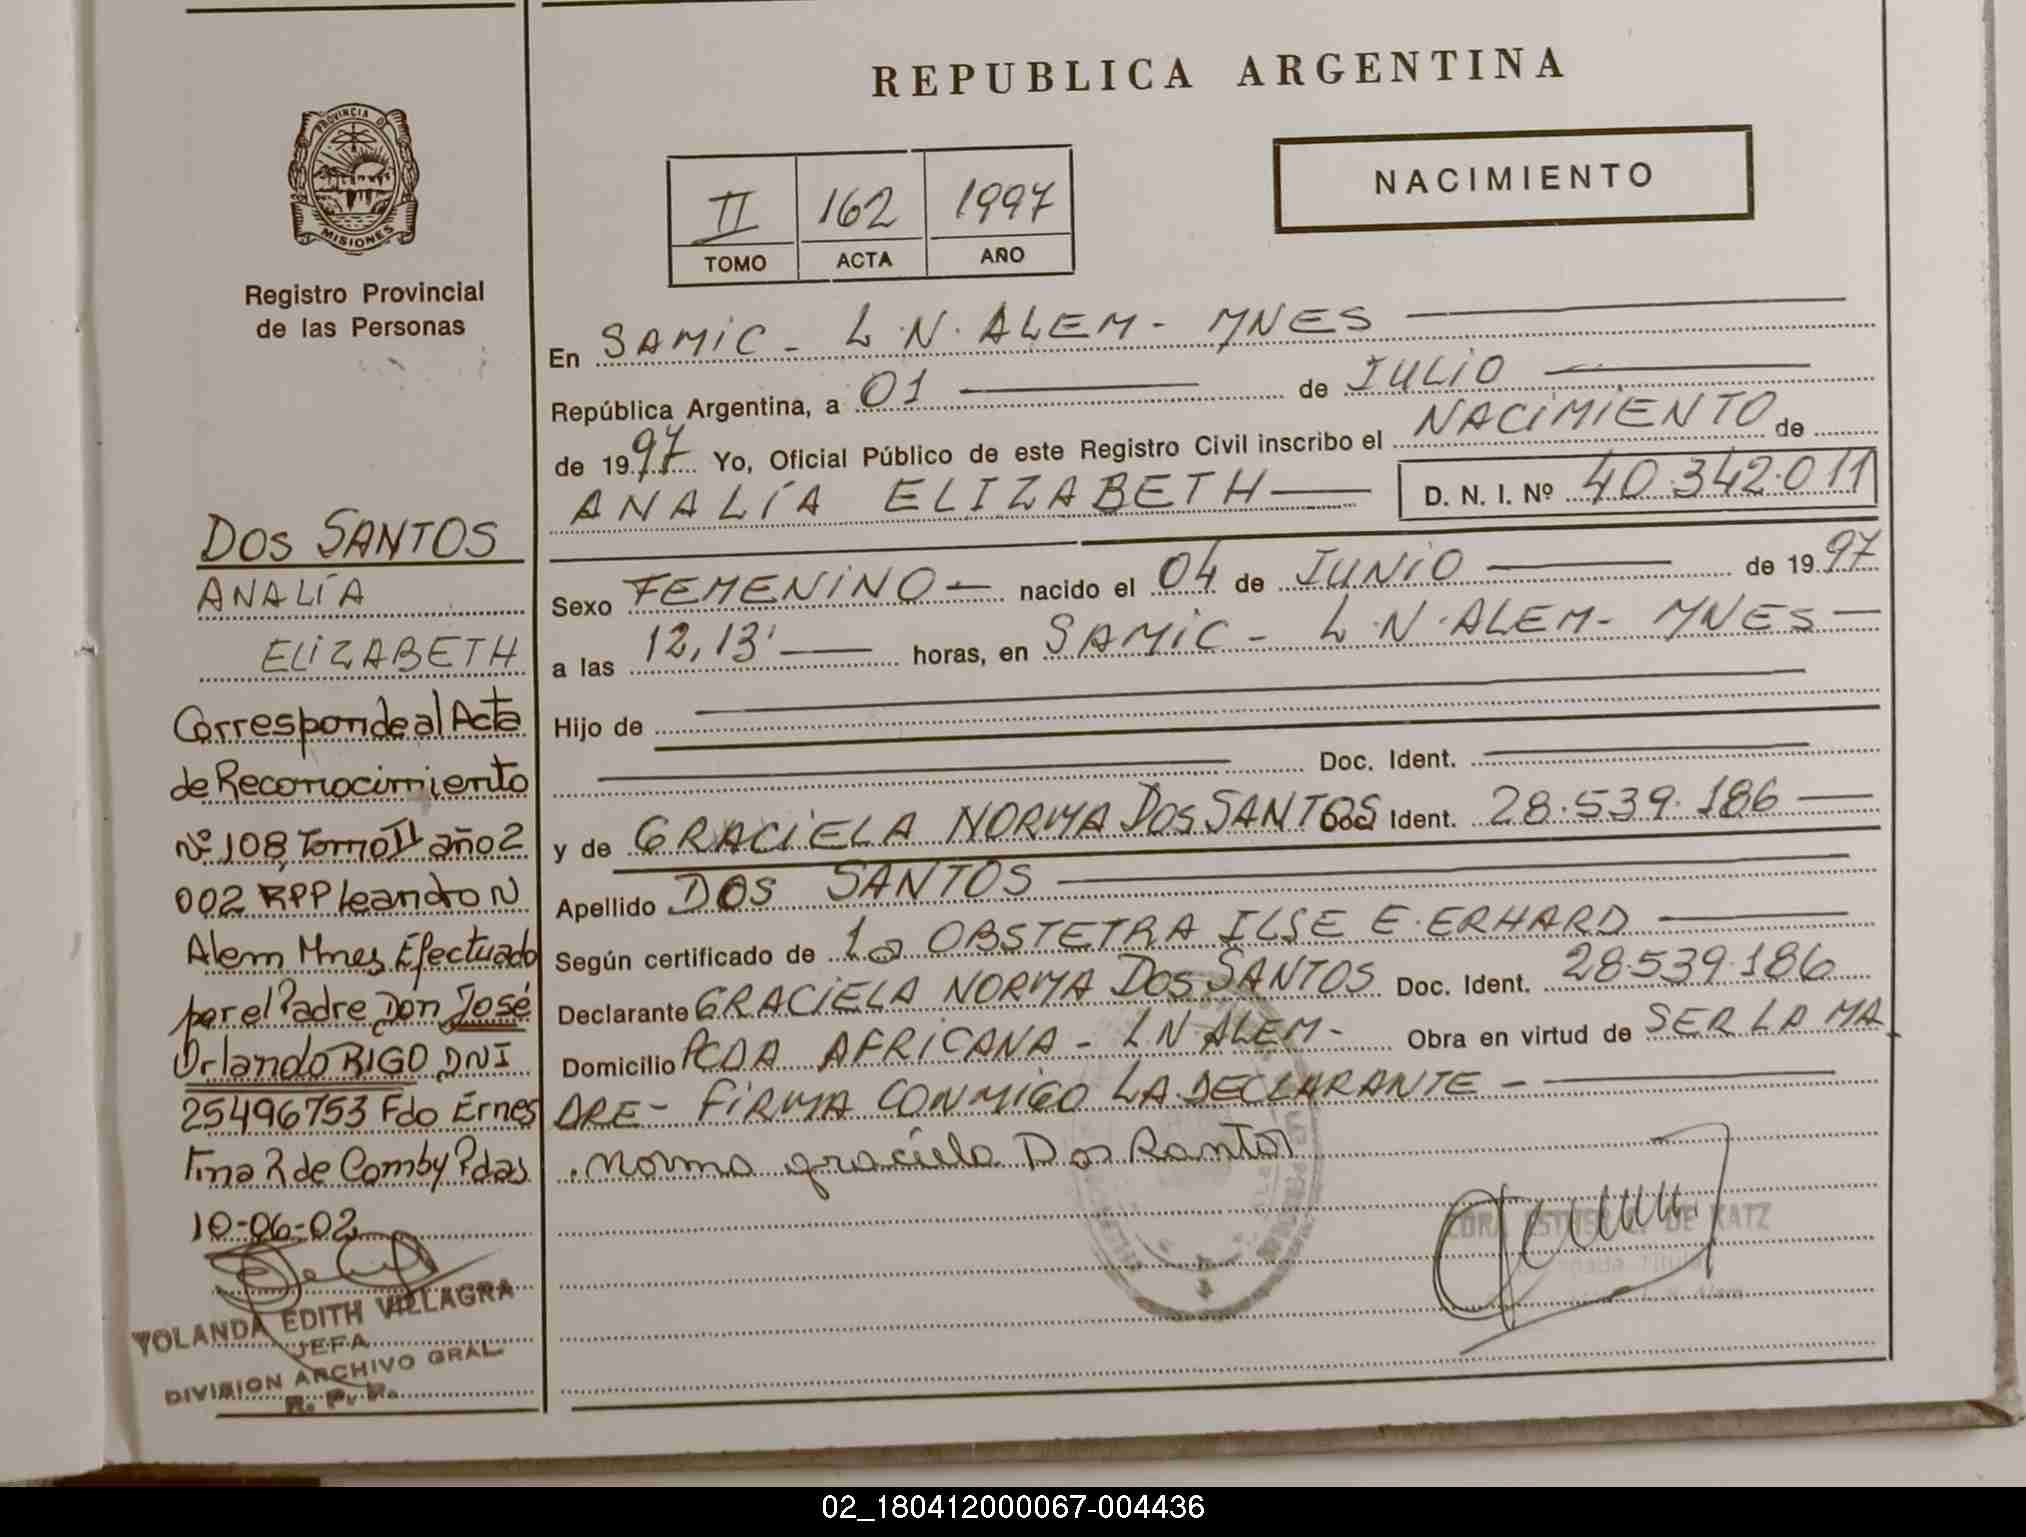 REPUBLICA ARGENTINA
PROVINCIA D
MISIONES
Registro Provincial
de las Personas
NACIMIENTO
II 162 1997
TOMO ACTA AÑO
En SAMIC - L.N. ALEM - MNES
República Argentina, a 01 de JULIO
de 1997 Yo, Oficial Público de este Registro Civil inscribo el NACIMIENTO de
ANALÍA ELIZABETH D. N. I. Nº 40.342.011
Sexo FEMENINO nacido el 04 de JUNIO de 1997
a las 12,13' horas, en SAMIC - L.N. ALEM - MNES
Hijo de
Doc. Ident.
y de GRACIELA NORMA DOS SANTOS Ident. 28.539.186
Apellido DOS SANTOS
Según certificado de La OBSTETRA ILSE E. ERHARD
Declarante GRACIELA NORMA DOS SANTOS Doc. Ident. 28.539.186
Domicilio PCDA AFRICANA - L N ALEM - Obra en virtud de SER LA MA
DRE - FIRMA CONMIGO LA DECLARANTE -
Norma graciela Dos Santos
DE KATZ
DOS SANTOS
ANALÍA
ELIZABETH
Corresponde al Acta
de Reconocimiento
Nº 108, Tomo II año 2
002 RPP Leandro N
Alem Mnes Efectuado
por el Padre Don José
Orlando RIGO DNI
25496753 Fdo Ernes
tina R de Comby Pdas
10-06-02
YOLANDA EDITH VILLAGRA
JEFA
DIVISION ARCHIVO GRAL.
R. P. P.
02_180412000067-004436